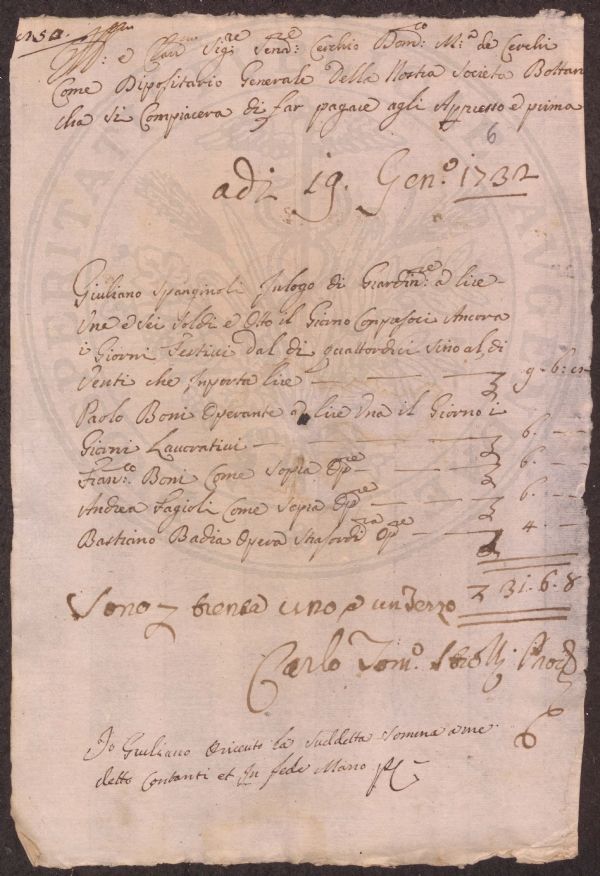 Ill: e Clar: Sig:re Send:re Cerchio Dom:co M:a de Cerchi
Come Dipositario Generale Della Nostra Societa Bottan
cha si Compiacera di far pagare agli Appresso e prima
6
adi 19. Gen:o 1732
Giuliano Spanginoli In logo di Giardin:re a lire
Una e Sei Soldi e Otto il Giorno Compresoci Ancora
i Giorni Festivi dal di quattordici Sino al di
Venti che Inporta lire — — — 9 . 6 :
Paolo Boni Operante a lire Una il Giorno i
Giorni Lavorativi — — — — 6 . — —
Fran:co Boni Come Sopra Op:re — — — 6 . — —
Andrea Fagioli Come Sopra Op:re — — — 6 . — —
Bastiano Badia Opera Straford:ra Op:re — — 4 . — —
31 . 6 . 8
Sono trenta uno e un terzo
Carlo Tom:o
Io Giuliano Riceuto la Suddetta Somma a me
detto Contanti et In fede Mano
VERITAT